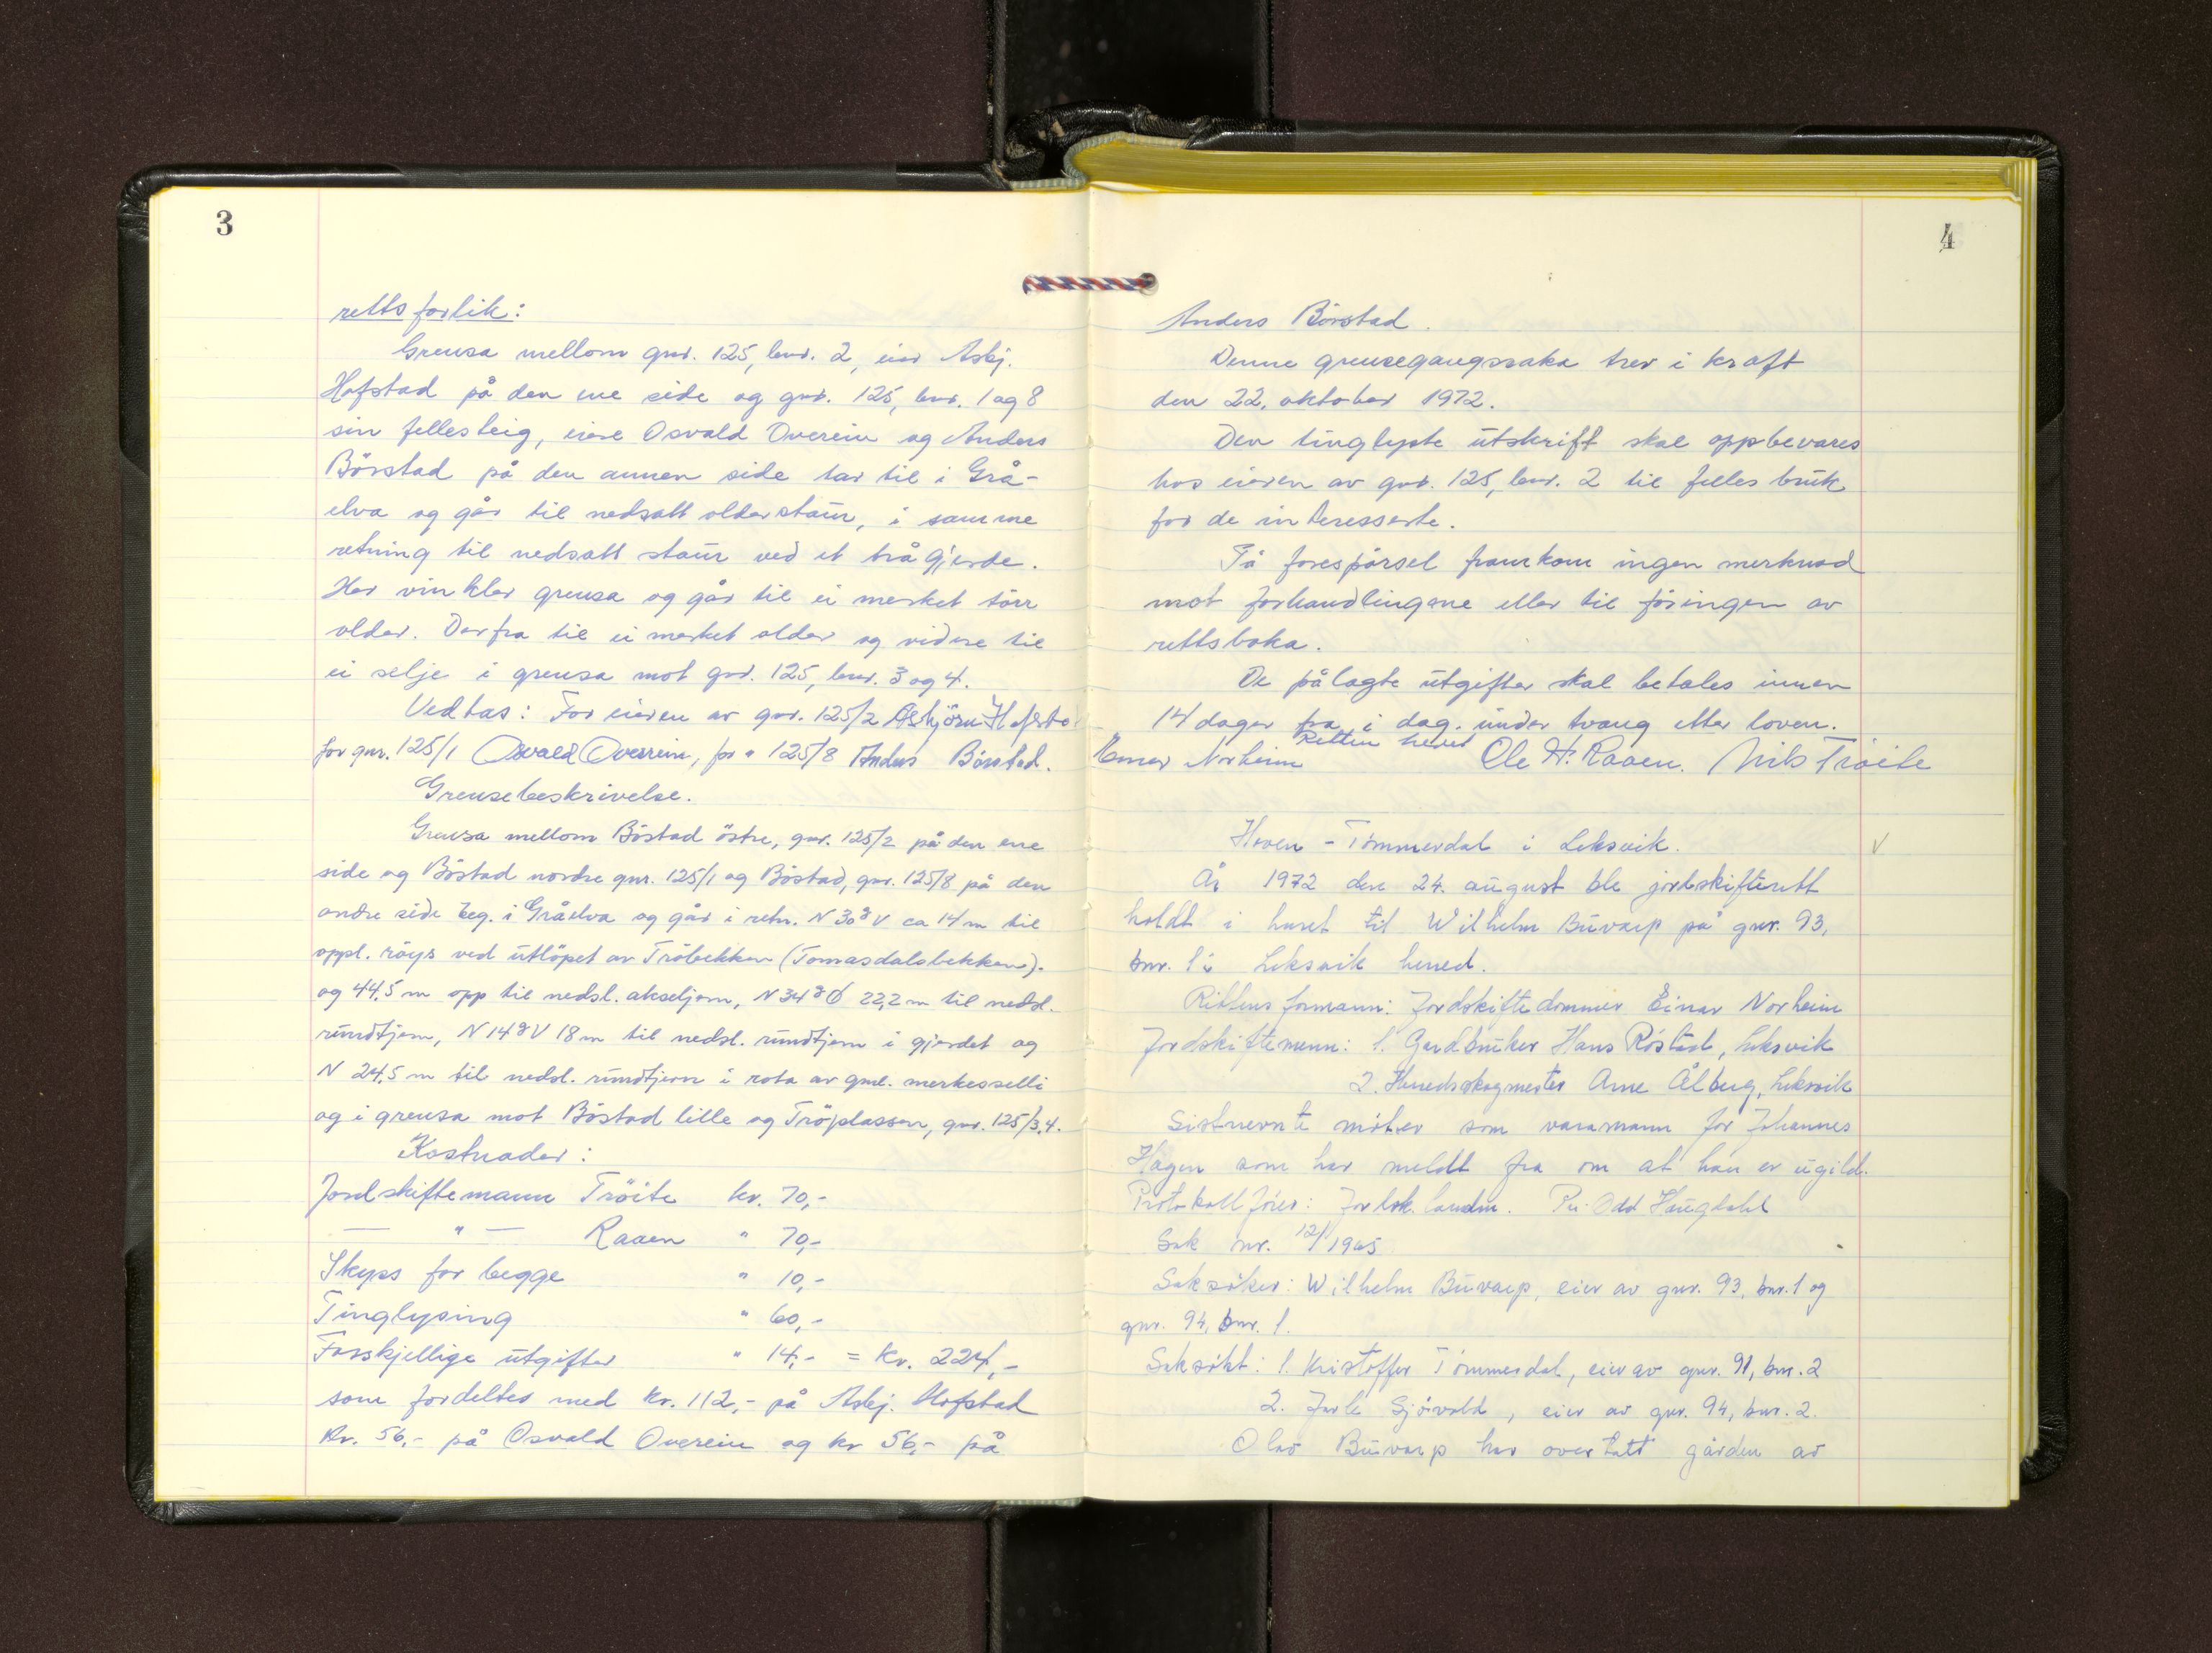 3
rettsforlik:
Grensa mellom gnr. 125, bnr. 2, eier Asbj.
Hofstad på den ene side og gnr. 125, bnr. 1 og 8
sin fellesteig, eiere Osvald Overein og Anders
Börstad på den annen side tar til i Grå-
elva og går til nedsatt olderstaur, i samme
retning til nedsatt staur ved et trågjerde.
Her vinkler grensa og går til ei merket törr
older. Derfra til ei merket older og videre til
ei selje i grensa mot gnr. 125, bnr. 3 og 4.
Vedtas: For eieren av gnr. 125/2 Asbjörn Hofstad
for gnr. 125/1 Osvald Overrein, for " 125/8 Anders Börstad.
Grensebeskrivelse.
Grensa mellom Böstad östre, gnr. 125/2 på den ene
side og Böstad nordre gnr. 125/1 og Böstad, gnr. 125/8 på den
andre side beg. i Gråelva og går i retn. N 30g V ca 14 m til
oppl. röys ved utlöpet av Tröbekken (Tomasdalsbekken).
og 44,5 m opp til nedsl. akseljern, N 34g Ø 22,2 m til nedsl.
rundtjern, N 14g V 18 m til nedsl. rundtjern i gjerdet og
N 24,5 m til nedsl. rundtjern i rota av gml. merkesselli
og i grensa mot Böstad lille og Tröplassen, gnr. 125/3,4.
Kostnader:
Jordskiftemann Tröite kr. 70,-
— " — Raaen " 70,-
Skyss for begge " 10,-
Tinglysing " 60,-
Forskjellige utgifter " 14,- = kr. 224,-
som fordeltes med kr. 112,- på Asbj. Hofstad
kr. 56,- på Osvald Overein og kr 56,- på
4
Anders Börstad.
Denne grensegangssaka trer i kraft
den 22. oktober 1972.
Den tinglyste utskrift skal oppbevares
hos eieren av gnr. 125, bnr. 2 til felles bruk
for de interesserte.
På forespörsel framkom ingen merknad
mot forhandlingene eller til föringen av
rettsboka.
De pålagte utgifter skal betales innen
14 dager fra i dag. under tvang etter loven.
Retten hevet
Einar Norheim Ole H. Raaen. Nils Tröite
Hoven - Tömmerdal i Leksvik. V
År 1972 den 24. august ble jordskifterett
holdt i huset til Wilhelm Buvarp på gnr. 93,
bnr. 1 i Leksvik herred.
Rettens formann: Jordskiftedommer Einar Norheim
Jordskiftemenn: 1. Gardbruker Hans Röstad, Leksvik
2. Herredsskogmester Arne Ålberg, Leksvik
Sistnevnte möter som varamann for Johannes
Hagen som har meldt fra om at han er ugild.
Protokollförer: Jordsk. landm. Per Odd Haugdahl
Sak nr. 12/1965
Saksöker: Wilhelm Buvarp, eier av gnr. 93, bnr. 1 og
gnr. 94, bnr. 1.
Saksökt: 1. Kristoffer Tömmerdal, eier av gnr. 91, bnr. 2
2. Jarle Sjövold, eier av gnr. 94, bnr. 2.
Olav Buvarp har overtatt gården av